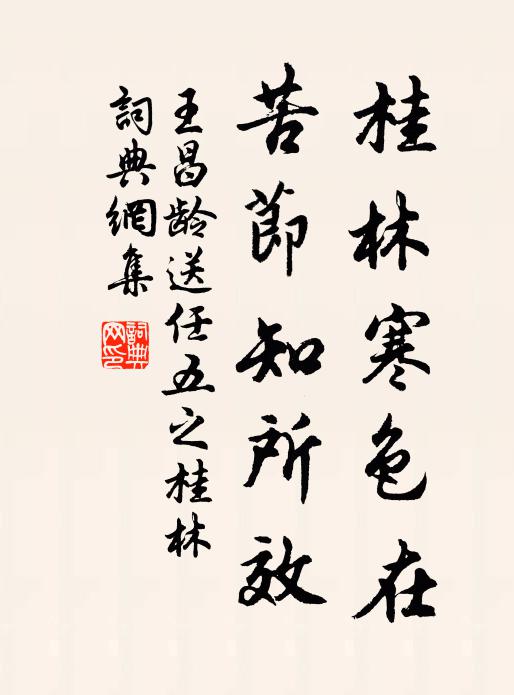 桂林寒色在
苦節知所效
王昌龄送任五之桂林
詞典網集
詞典網印